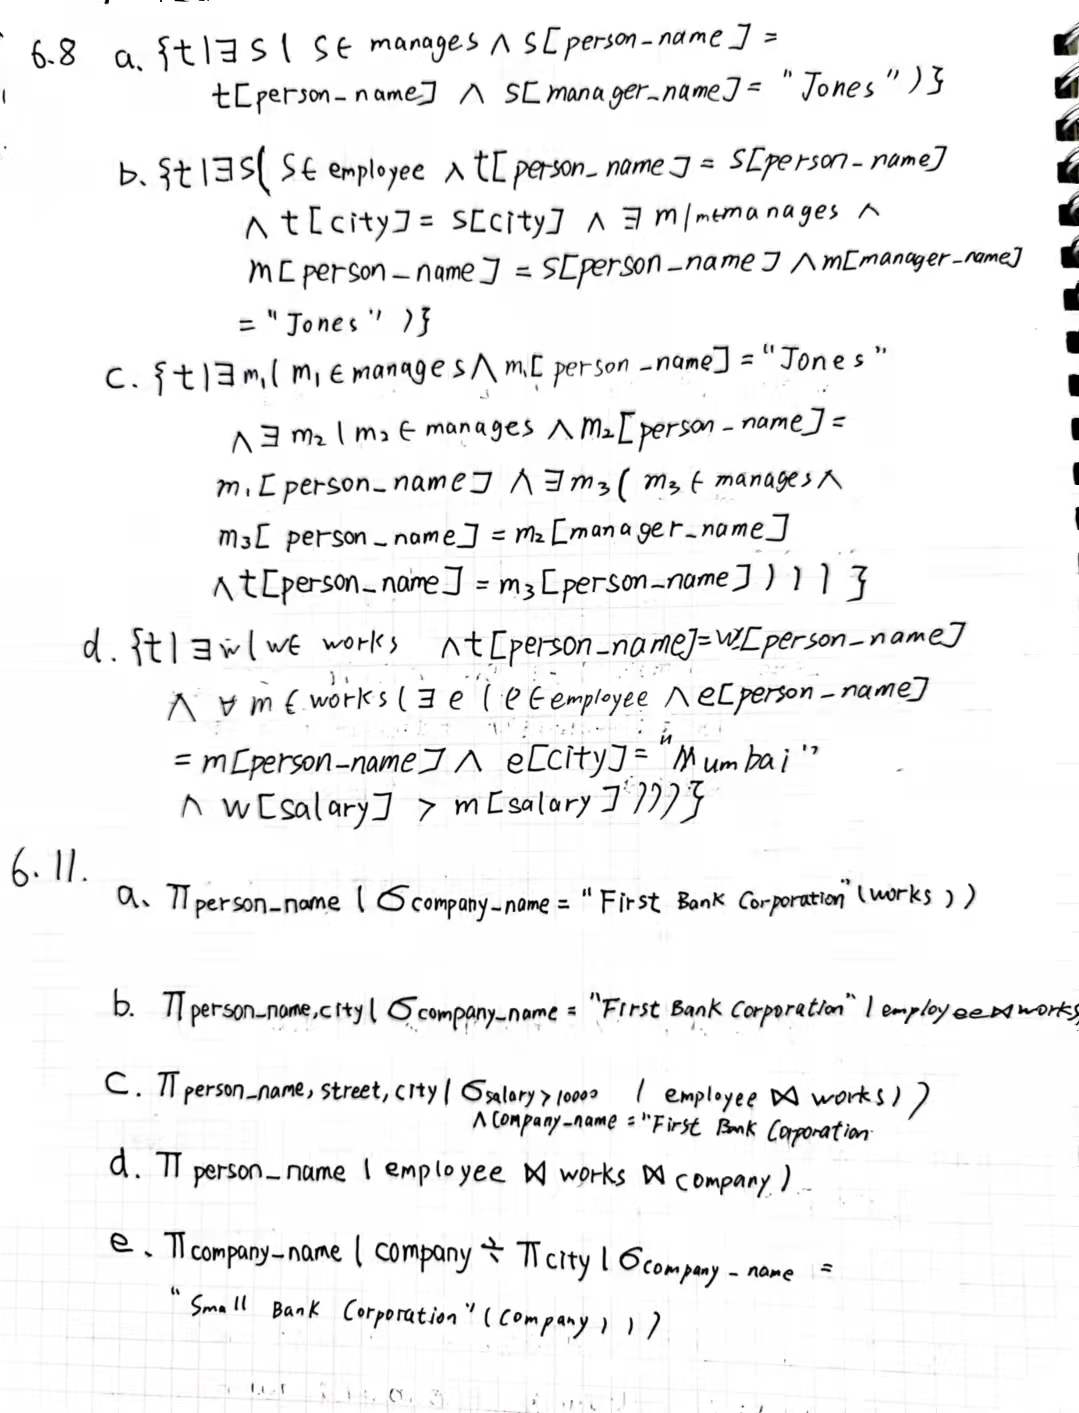 6.8 a. {t|∃s( s∈ manages ∧ s[person-name] =
t[person_name] ∧ s[manager_name] = "Jones")}
b. {t|∃s( s∈ employee ∧ t[person_name] = s[person-name]
∧ t[city] = s[city] ∧ ∃ m(m∈manages ∧
m[person_name] = s[person_name] ∧ m[manager_name]
= "Jones" )}
c. {t|∃m₁( m₁∈manages∧ m₁[person_name] = "Jones"
∧∃ m₂ ( m₂∈ manages ∧ m₂[person_name] =
m₁[person_name] ∧ ∃m₃( m₃∈ manages∧
m₃[person_name] = m₂[manager_name]
∧t[person_name] = m₃[person_name])))}
d. {t|∃w(w∈ works ∧t[person_name]=w[person_name]
∧ ∀ m∈ works(∃ e (e∈employee ∧e[person_name]
= m[person_name] ∧ e[city] = "Mumbai"
∧ w[salary] > m[salary])))}
6.11.
a. Π person_name ( σ company_name = "First Bank Corporation" (works))
b. Π person_name,city( σ company_name = "First Bank Corporation" ( employee⋈works
c. Π person_name, street, city( σ salary>10000 ( employee ⋈ works))
∧company_name = "First Bank Corporation
d. Π person_name ( employee ⋈ works ⋈ company)
e. Π company_name ( company ÷ Π city ( σ company_name =
"Small Bank Corporation" (company)))